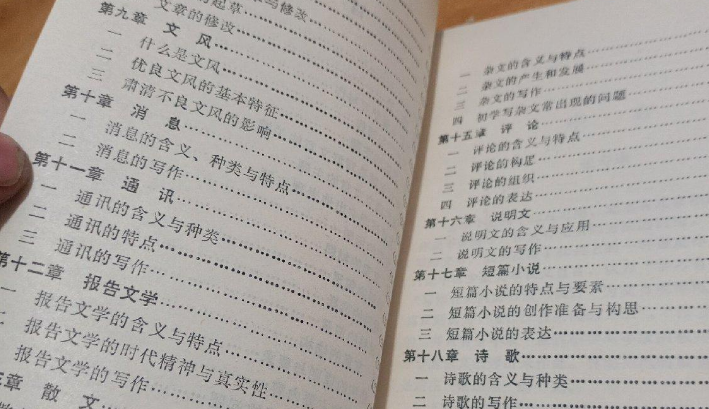 文章的修改
第九章 文 风
一 什么是文风
二 优良文风的基本特征
三 肃清不良文风的影响
第十章 消 息
一 消息的含义、种类与特点
二 消息的写作
第十一章 通 讯
一 通讯的含义与种类
二 通讯的特点
三 通讯的写作
第十二章 报告文学
一 报告文学的含义与特点
二 报告文学的时代精神与真实性
报告文学的写作
章 散 文
一 杂文的含义与特点
二 杂文的产生和发展
三 杂文的写作
四 初学写杂文常出现的问题
第十五章 评 论
一 评论的含义与特点
二 评论的构思
三 评论的组织
四 评论的表达
第十六章 说明文
一 说明文的含义与应用
二 说明文的写作
第十七章 短篇小说
一 短篇小说的特点与要素
二 短篇小说的创作准备与构思
三 短篇小说的表达
第十八章 诗 歌
一 诗歌的含义与种类
二 诗歌的写作